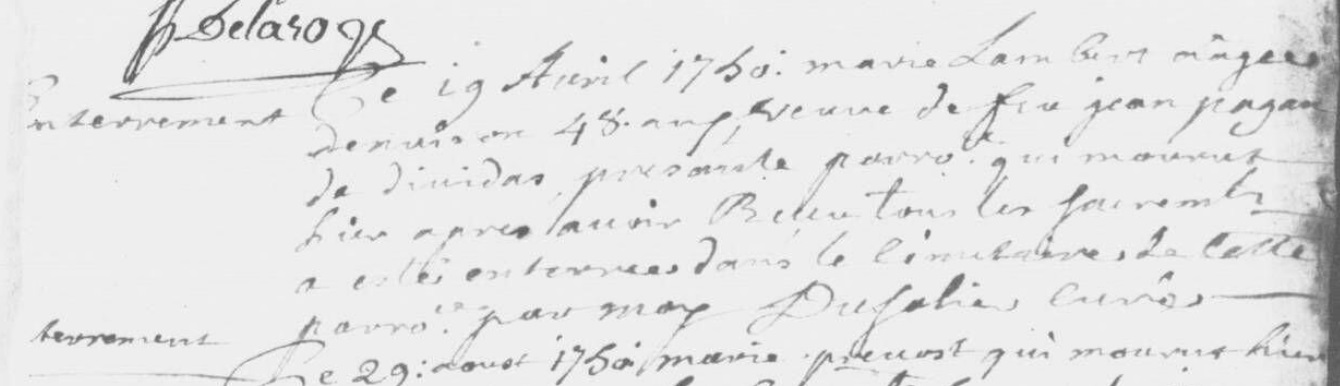 Delaroqe
Enterrement
Le 19 Avril 1750. marie Lambert aagee
denviron 48. ans, veuve de feu jean pagan
de dividas, presante parro.e qui mourut
hier apres avoir Receu tous les sacremts
a estés enterrees dans le cimetaire de cette
parro.e par moy Dufalies curés
terrement
Le 29: aoust 1750: marie prevost qui mourut hier